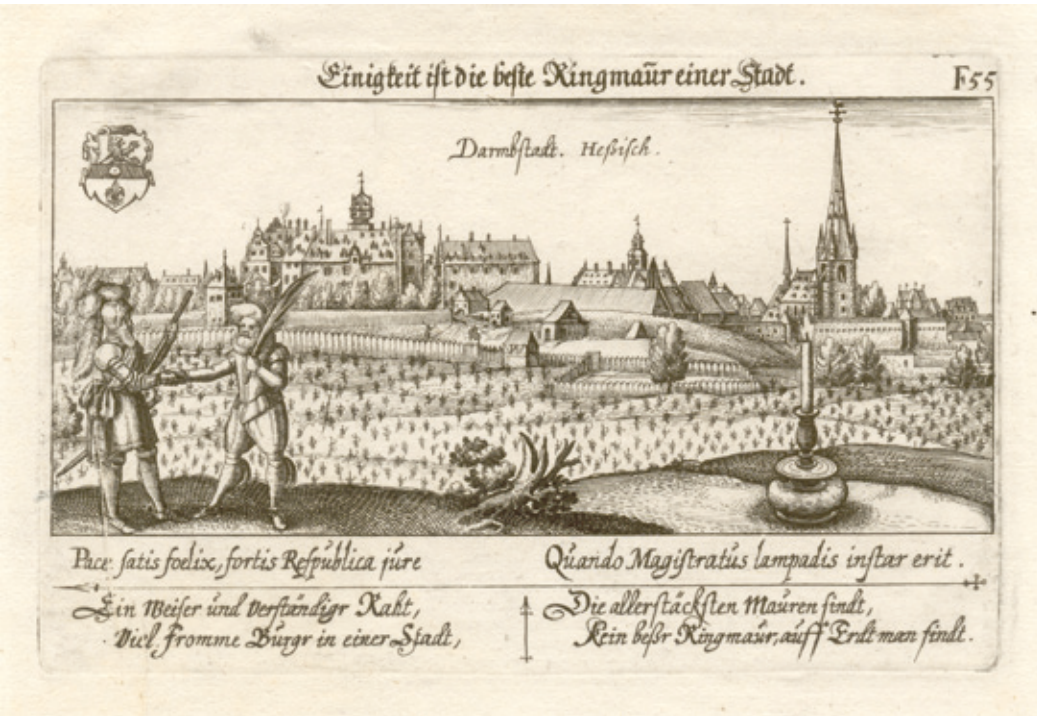 Einigkeit ist die beste Ringmaūr einer Stadt.
F55
Darmbstadt. Heßisch.
Pace satis foelix, fortis Respūblica jūre
Qūando Magistratūs lampadis instar erit.
Ein Weiser und verständigr Raht,
Viel fromme Būrgr in einer Stadt,
Die allerstäcksten Maūren sindt,
Kein beßr Ringmaūr, auff Erdt man findt.